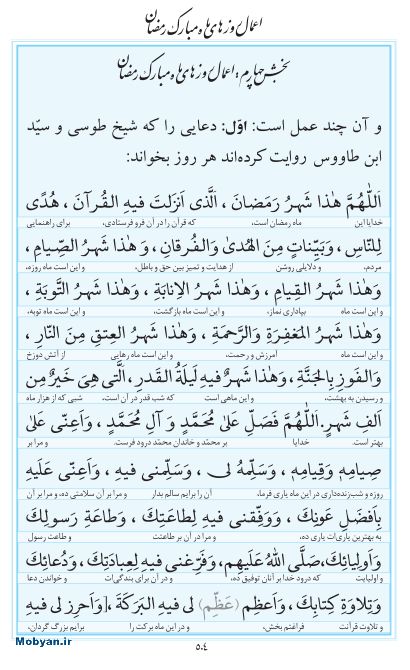 اعمال روزهای ماه مبارک رمضان
بخش چهارم: اعمال روزهای ماه مبارک رمضان
و آن چند عمل است: اوّل: دعایی را که شیخ طوسی و سیّد
ابن طاووس روایت کرده‌اند هر روز بخواند:
اَللّٰهُمَّ هٰذا شَهرُ رَمَضانَ ، الَّذی اَنزَلتَ فیهِ القُرآنَ ، هُدًی
خدایا این ماه رمضان است، که قرآن را در آن فرو فرستادی، برای راهنمایی
لِلنّاسِ ، وَبَیِّناتٍ مِنَ الهُدیٰ وَالفُرقانِ ، وَ هٰذا شَهرُ الصِّیامِ ،
مردم، و دلایلی روشن از هدایت و تمیز بین حق و باطل، و این است ماه روزه،
وَهٰذا شَهرُ القِیامِ ، وَهٰذا شَهرُ الاِنابَةِ ، وَهٰذا شَهرُ التَّوبَةِ ،
و این است ماه بپاداری نماز، و این است ماه بازگشت، و این است ماه توبه،
وَهٰذا شَهرُ المَغفِرَةِ وَالرَّحمَةِ ، وَهٰذا شَهرُ العِتقِ مِنَ النّارِ ،
و این است ماه آمرزش و رحمت، و این است ماه رهایی از آتش دوزخ
وَالفَوزِ بِالجَنَّةِ ، وَهٰذا شَهرٌ فیهِ لَیلَةُ القَدرِ، الَّتی هِیَ خَیرٌ مِن
و رسیدن به بهشت، و این ماهی است که شب قدر در آن است، شبی که از هزار ماه
اَلفِ شَهرٍ. اَللّٰهُمَّ فَصَلِّ عَلیٰ مُحَمَّدٍ وَ آلِ مُحَمَّدٍ ، وَاَعِنّی عَلیٰ
بهتر است. خدایا بر محمّد و خاندان محمّد درود فرست. و مرا بر
صِیامِهِ وَقِیامِهِ ، وَسَلِّمهُ لی ، وَسَلِّمنی فیهِ ، وَاَعِنّی عَلَیهِ
روزه و شب‌زنده‌داری در این ماه یاری فرما، آن را برایم سالم بدار و مرا بر آن سلامتی ده، و مرا بر آن
بِاَفضَلِ عَونِکَ ، وَوَفِّقنی فیهِ لِطاعَتِکَ ، وَطاعَةِ رَسولِکَ
به بهترین یاری‌ات یاری ده، و مرا در آن بر طاعتت و طاعت رسول
وَاَولِیائِکَ، صَلَّی اللهُ عَلَیهِم، وَفَرِّغنی فیهِ لِعِبادَتِکَ، وَدُعائِکَ
و اولیایت که درود خدا بر آنان توفیق ده، و در آن برای بندگی‌ات و خواندن دعا
وَتِلاوَةِ کِتابِکَ، وَاَعظِم (عَظِّم) لی فیهِ البَرَکَةَ ،[وَاَحرِز لی فیهِ
و تلاوت قرآنت فراغتم بخش، و در این ماه برکت را برایم بزرگ گردان،
٥٠٤
Mobyan.ir